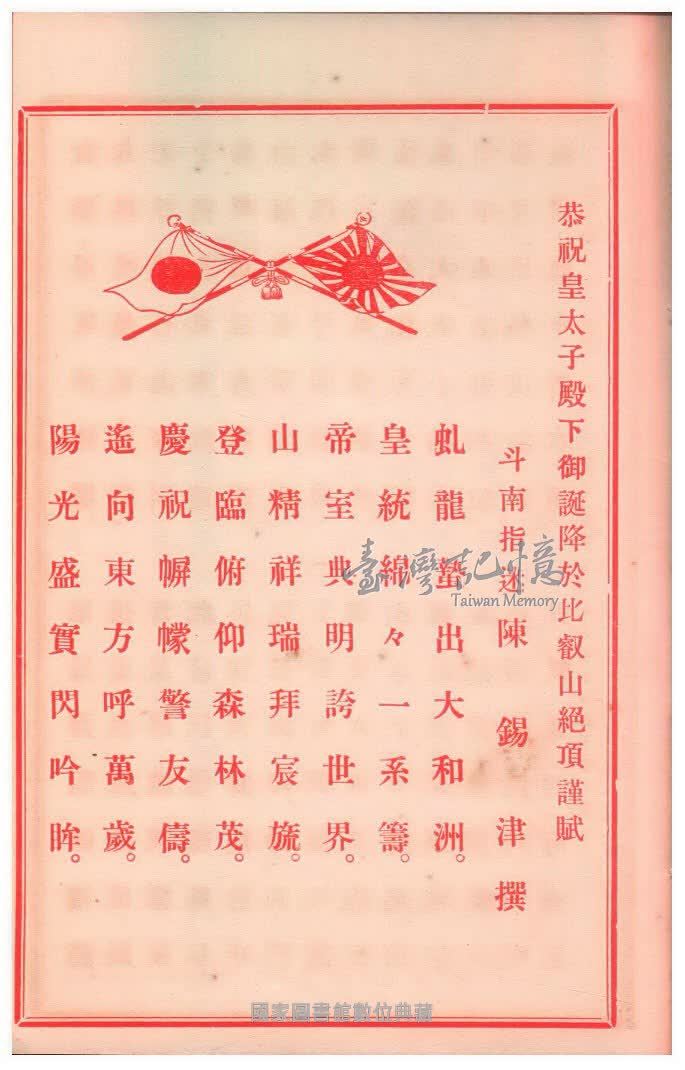 恭祝皇太子殿下御誕降於比叡山絕頂謹賦
斗南指迷陳錫津撰
虬龍蟄出大和洲。
皇統綿々一系籌。
帝室典明誇世界。
山精祥瑞拜宸旒。
登臨俯仰森林茂。
慶祝幈幪警友儔。
遙向東方呼萬歲。
陽光盛實閃吟眸。
臺灣記憶
Taiwan Memory
國家圖書館數位典藏